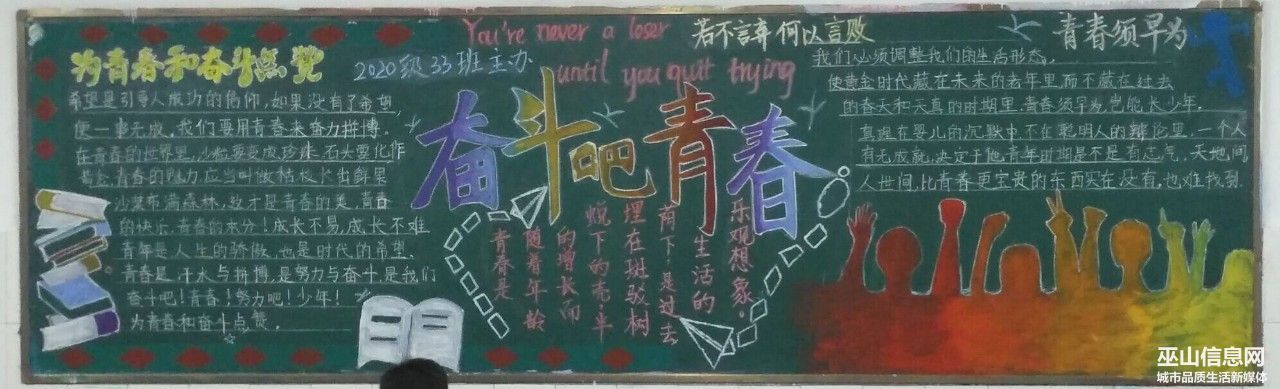 为青春和奋斗点赞
希望是引导人成功的信仰,如果没有了希望,
便一事无成,我们要用青春来奋力拼博。
在青春的世界里,沙粒要变成珍珠,石头要化作
黄金,青春的魅力应当叫做枯枝长出鲜果
沙漠布满森林,这才是青春的美,青春
的快乐,青春的本分!成长不易,成长不难
青年是人生的骄傲,也是时代的希望.
青春是汗水与拼博,是努力与奋斗,是我们
奋斗吧!青春!努力吧!少年!
为青春和奋斗点赞。
2020级33班主办
You're never a loser
until you quit trying
若不言弃何以言败
奋斗吧青春
青春是
随着年龄
的增长而
蜕下的壳半
埋在斑驳树
荫下.是过去
生活的
乐观想象。
青春须早为
我们必须调整我们的生活形态,
使黄金时代藏在未来的老年里,而不藏在过去
的春天和天真的时期里.青春须早为,岂能长少年.
真理在婴儿的沉默中,不在聪明人的辩论里.一个人
有无成就,决定于他青年时期是不是有志气.天地间
人世间,比青春更宝贵的东西实在没有,也难找到.
巫山信息网
城市品质生活新媒体